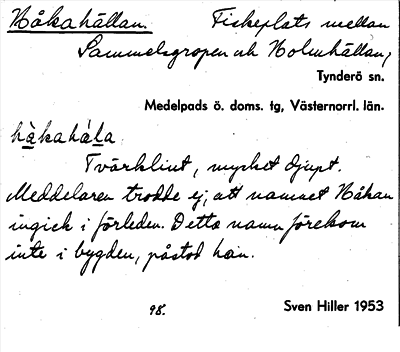 Håkahällan. Fiskeplats mellan
Sammelsgropen och Holmhällan,
Tynderö sn.
Medelpads ö. doms. tg, Västernorrl. län.
hàkahála
Tvärklint, mycket djupt.
Meddelaren trodde ej, att namnet Håkan
ingick i förleden. Detta namn förekom
inte i bygden, påstod han.
98. Sven Hiller 1953